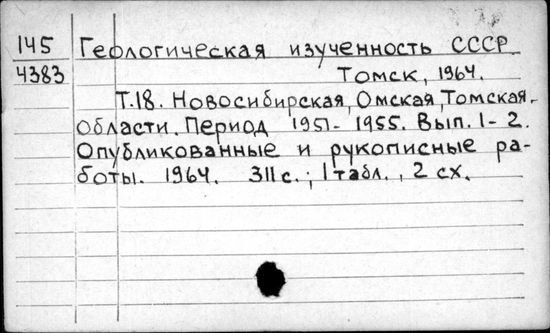 145 Геологическая изученность СССР
4383 Томск, 1964.
Т.18. Новосибирская, Омская, Томская.
области. Период 1951- 1955. Вып. 1-2.
Опубликованные и рукописные ра-
боты. 1964. 311 с.; 1 табл., 2 сх.